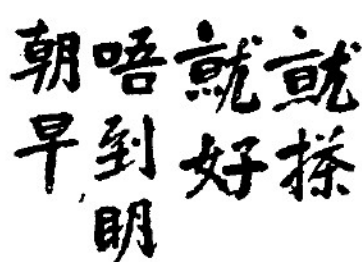 就搽
就好
唔到明
朝早